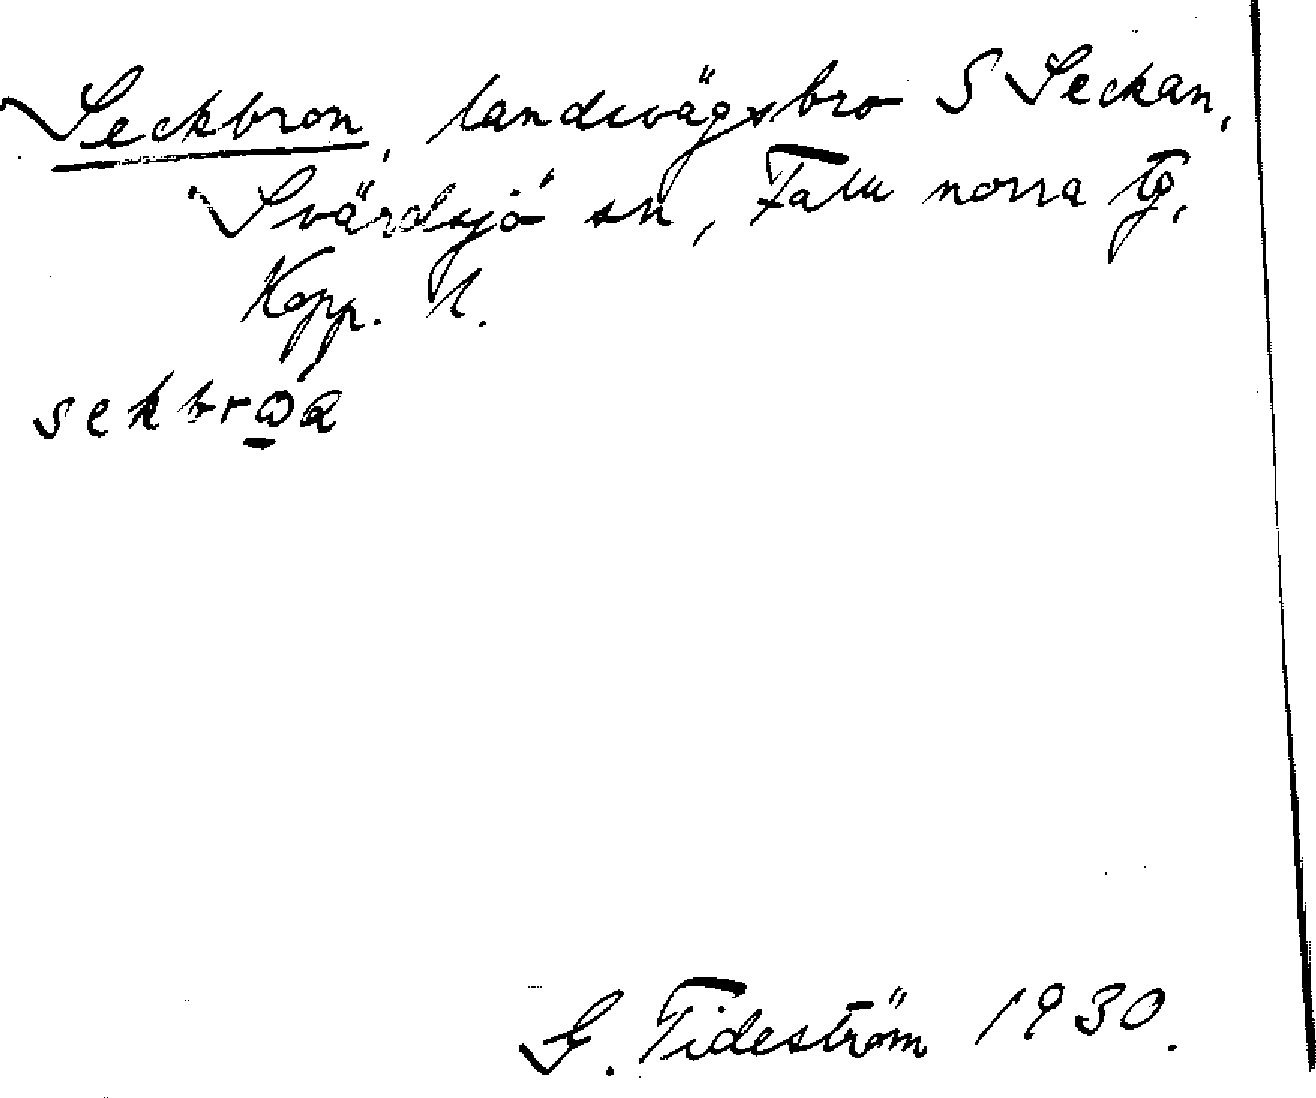 Seckbron, landsvägsbro S Seckan,
Svärdsjö sn, Falu norra tg,
Kopp. l.
G. Tideström 1930.